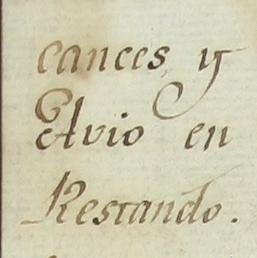 cances, y
Avio en
Restando.